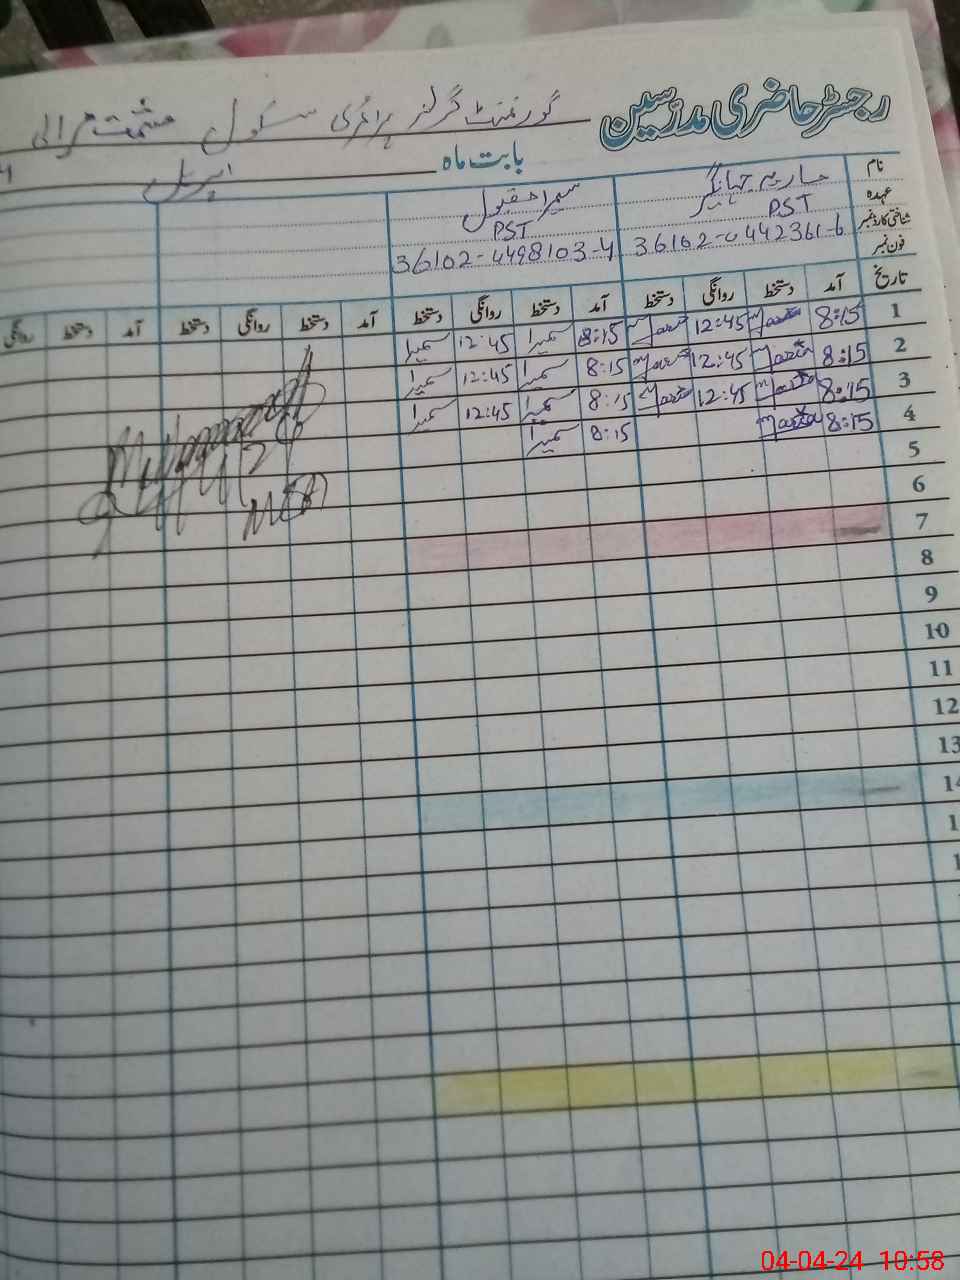 رجسٹر حاضری مدرسین گورنمنٹ گرلز پرائمری سکول
بابت ماہ اپریل
نام ماریہ جہانگیر سمیرا مقبول
عہدہ PST PST
شناختی کارڈ نمبر 36102-0442361-6 36102-4498103-4
فون نمبر
تاریخ آمد دستخط روانگی دستخط آمد دستخط روانگی دستخط آمد دستخط روانگی دستخط آمد دستخط روانگی
1 8:15 Maria 12:45 Maria 8:15 سمیرا 12:45 سمیرا
2 8:15 Maria 12:45 Maria 8:15 سمیرا 12:45 سمیرا
3 8:15 Maria 12:45 Maria 8:15 سمیرا 12:45 سمیرا
4 8:15 Maria 8:15 سمیرا
5
6
7
8
9
10
11
12
13
14
04-04-24 10:58